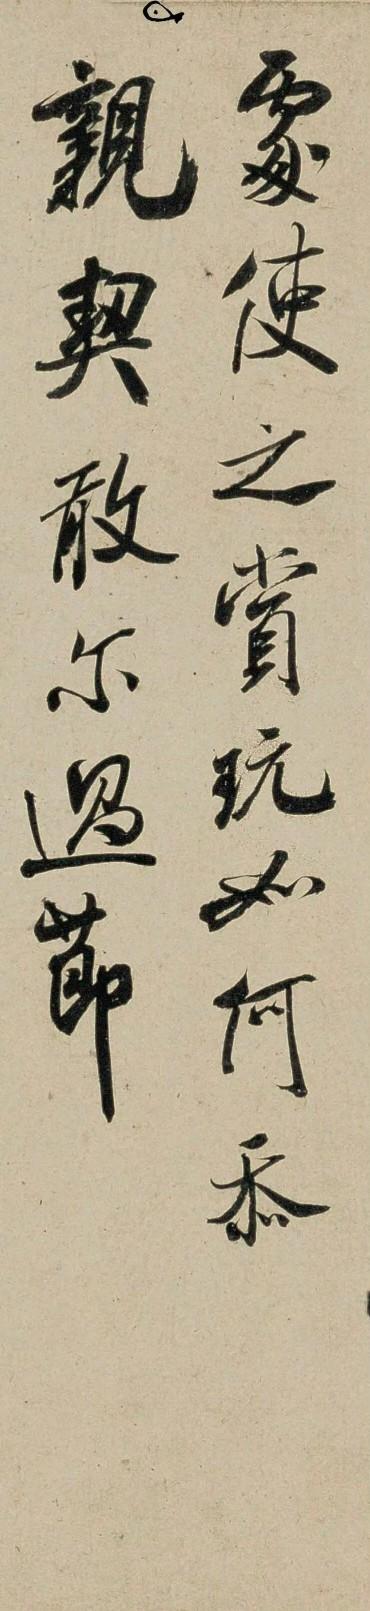 處使之賞玩如何忝
親契敢尔過節